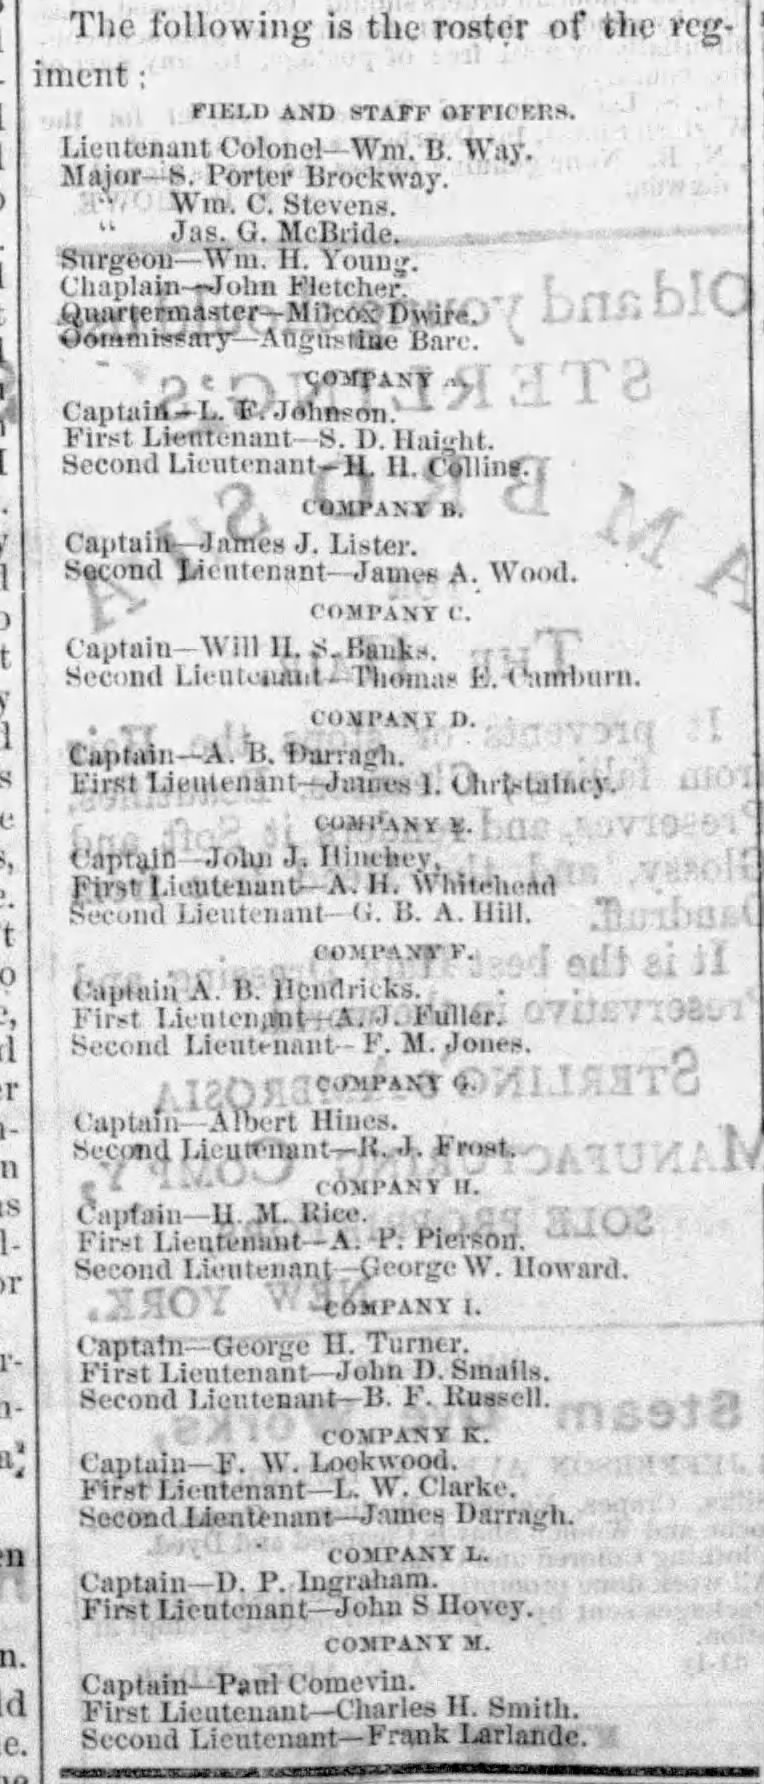 The following is the roster of the reg-
iment:
FIELD AND STAFF OFFICERS.
Lieutenant Colonel—Wm. B. Way.
Major—S. Porter Brockway.
" Wm. C. Stevens.
" Jas. G. McBride.
Surgeon—Wm. H. Young.
Chaplain—John Fletcher.
Quartermaster—Milcox Dwire.
Commissary—Augustine Barc.
COMPANY A.
Captain—L. F. Johnson.
First Lieutenant—S. D. Haight.
Second Lieutenant—H. H. Collins.
COMPANY B.
Captain—James J. Lister.
Second Lieutenant—James A. Wood.
COMPANY C.
Captain—Will H. S. Banks.
Second Lieutenant—Thomas E. Camburn.
COMPANY D.
Captain—A. B. Darragh.
First Lieutenant—James I. Christaincy.
COMPANY E.
Captain—John J. Hinchey,
First Lieutenant—A. H. Whitehead
Second Lieutenant—G. B. A. Hill.
COMPANY F.
Captain A. B. Hendricks.
First Lieutenant—A. J. Fuller.
Second Lieutenant—F. M. Jones.
COMPANY G.
Captain—Albert Hines.
Second Lieutenant—R. J. Frost.
COMPANY H.
Captain—H. M. Rice.
First Lieutenant—A. P. Pierson.
Second Lieutenant—George W. Howard.
COMPANY I.
Captain—George H. Turner.
First Lieutenant—John D. Smails.
Second Lieutenant—B. F. Russell.
COMPANY K.
Captain—F. W. Lockwood.
First Lieutenant—L. W. Clarke.
Second Lieutenant—James Darragh.
COMPANY L.
Captain—D. P. Ingraham.
First Lieutenant—John S Hovey.
COMPANY M.
Captain—Paul Comevin.
First Lieutenant—Charles H. Smith.
Second Lieutenant—Frank Larlande.